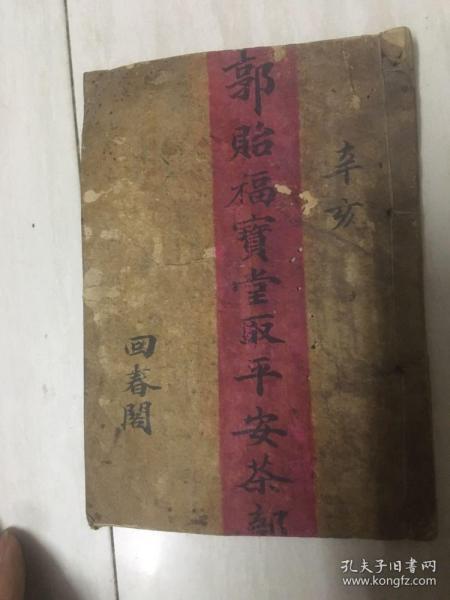 辛亥
郭貽福寶堂取平安茶部
回春閣
孔夫子旧书网
www.kongfz.com